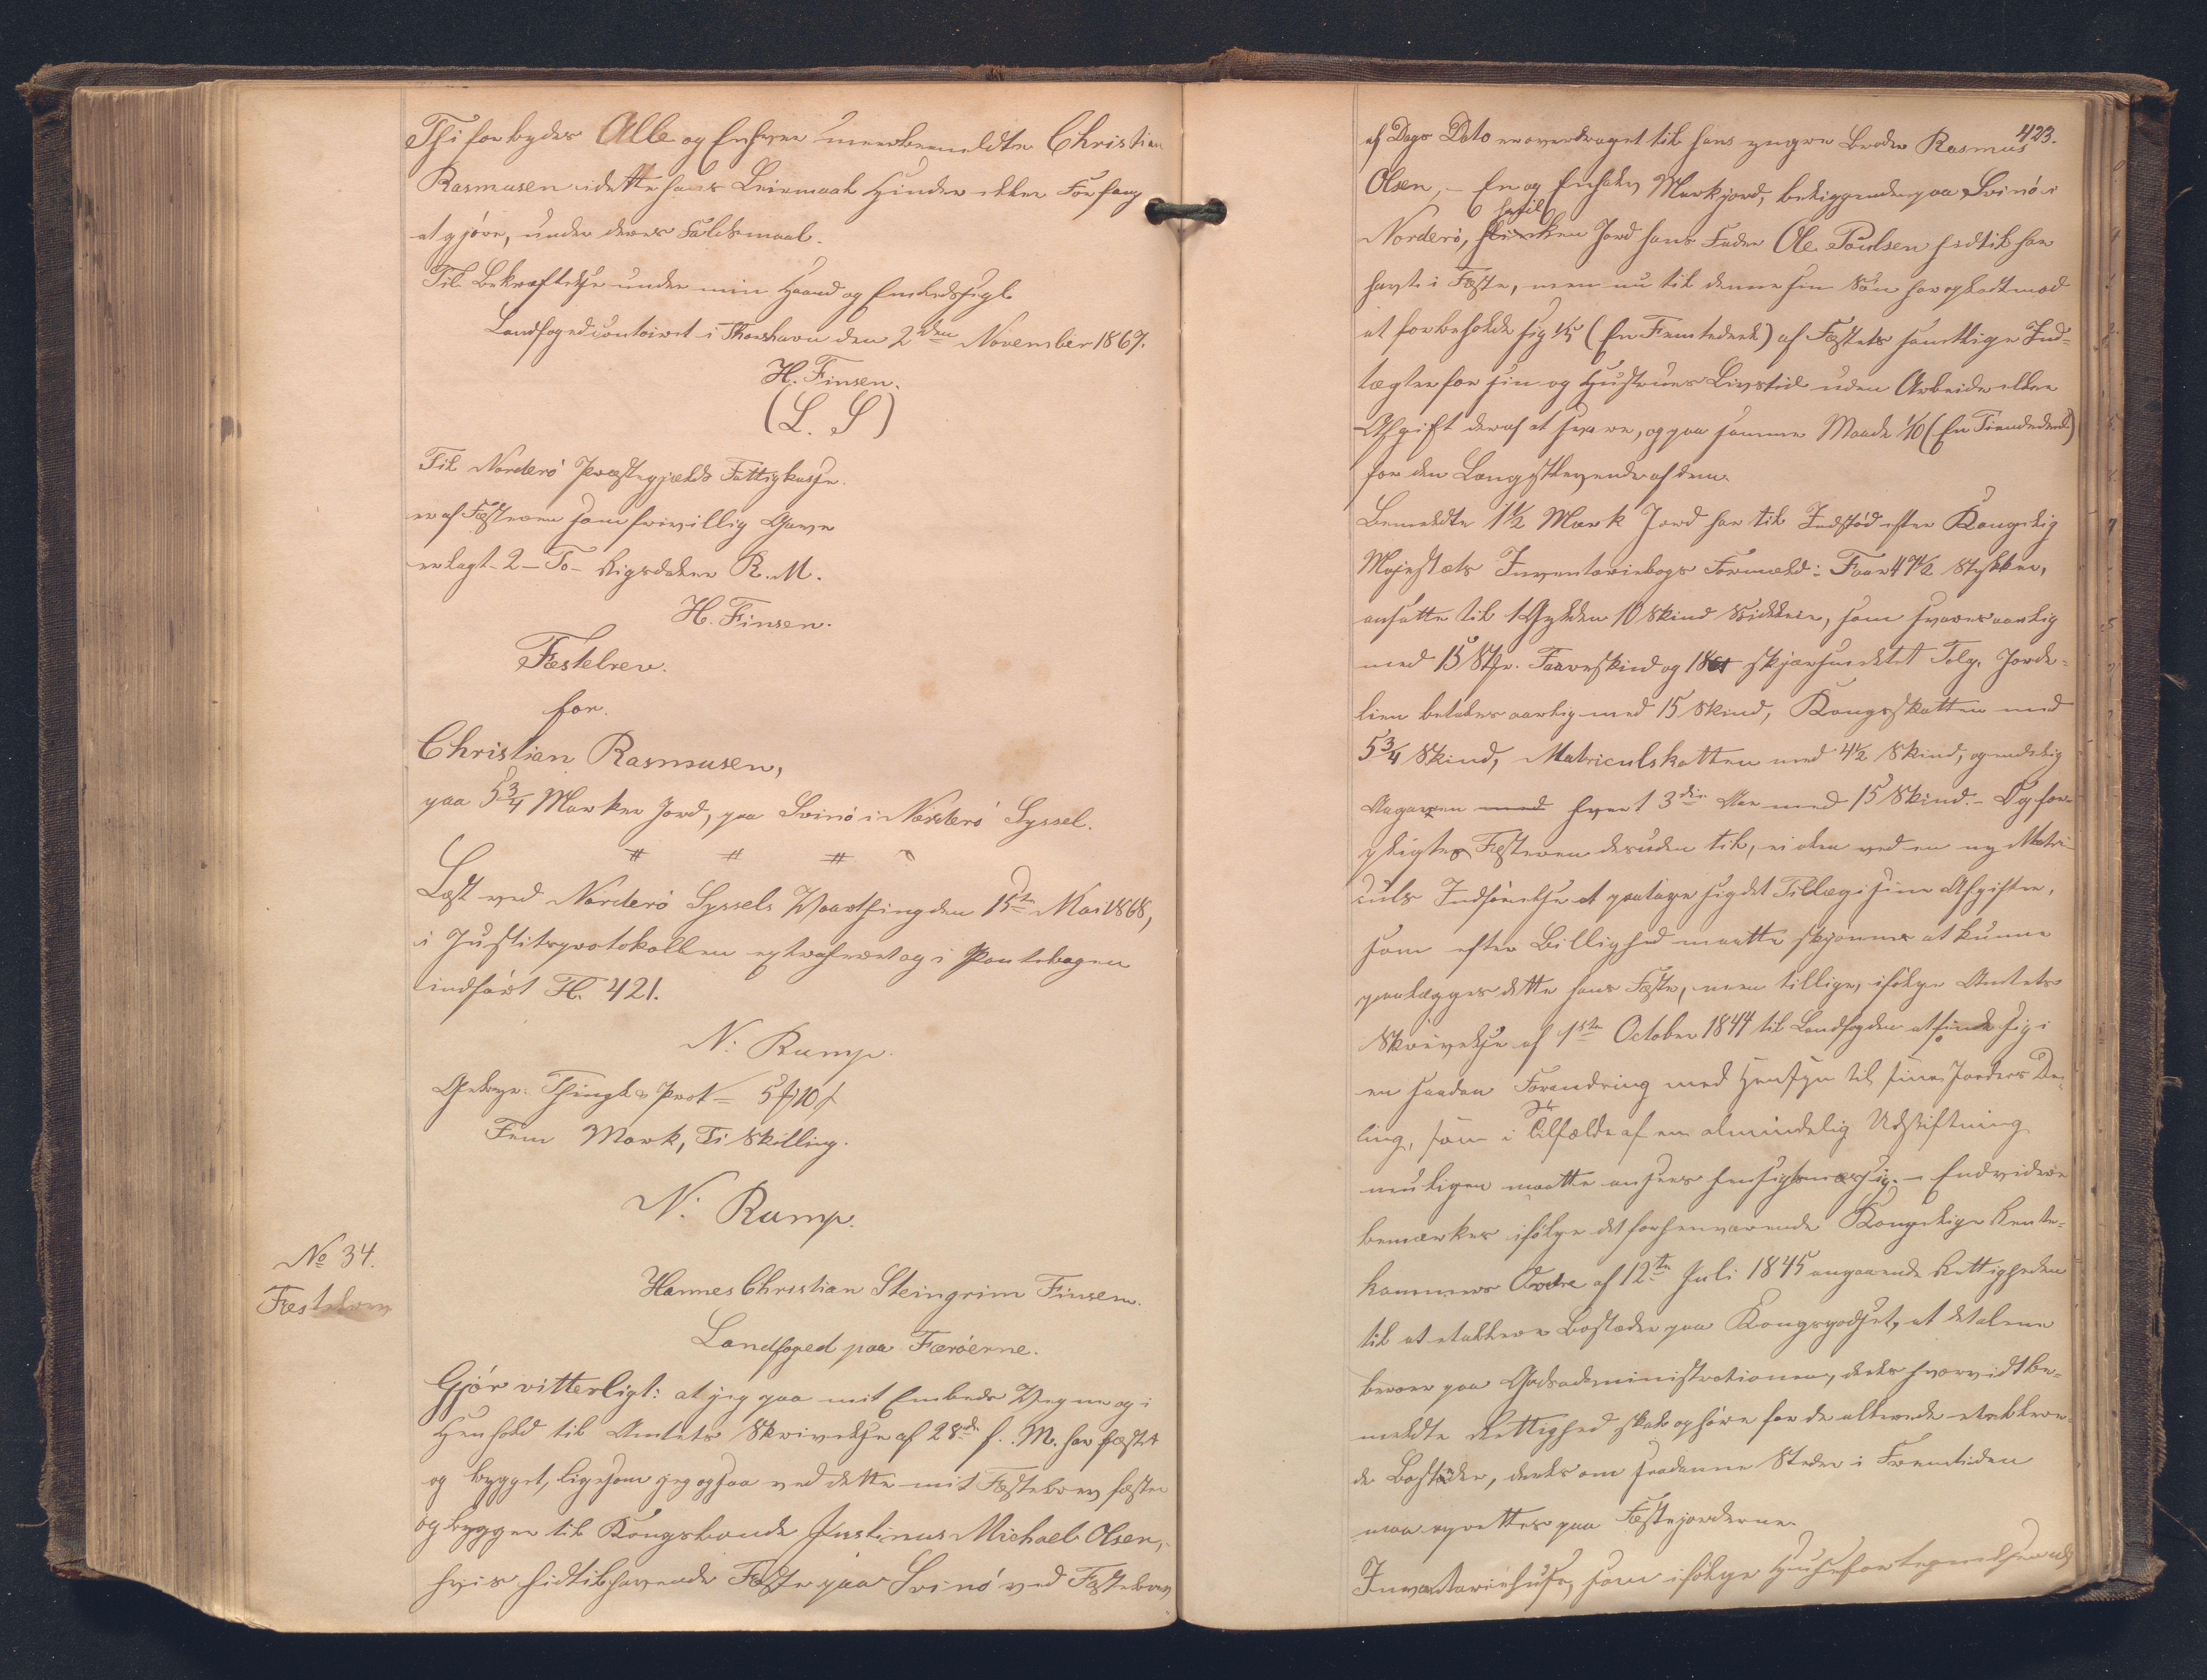 Thi forbydes Alle og Enhver meerbemeldte Christian
Rasmusen i dette hans Leiemaal Hinder eller Forfang
at gjøre, under deres Faldsmaal.
Til Bekræftelse under min Haand og Embedssegl.
Landfogedcontoiret i Thorshavn den 2den November 1867.
H. Finsen.
(L. S)
Til Norderö Præstegjælds Fattigkasse
er af Fæsteren som frivillig Gave
erlagt 2 - To - Rigsdaler R. M.
H. Finsen.
Fæstebrev
for
Christian Rasmusen,
paa 5 3/4 Marker Jord, paa Svinö i Norderö Syssel.
Læst ved Norderö Syssels Vaarthing den 15de Mai 1868,
i Justitsprotokollen extraheret og i Pantebogen
indført Fl. 421.
N. Rump.
Gebyr: Thingl. & Prot = 5 ℳ 10 ß
Fem Mark, Ti Skilling.
N. Rump.
No 34.
Fæstebrev
Hannes Christian Steingrim Finsen.
Landfoged paa Færöerne.
Gjör vitterligt: at jeg paa mit Embeds Vegne og i
Henhold til Amtets Skrivelse af 28de f. M. har fæstet
og bygget, ligesom jeg ogsaa ved dette mit Fæstebrev fæster
og bygger til Kongsbonde Justinus Michael Olsen,
hvis hidtilhavende Fæste paa Svinö ved Fæstebrev
423.
af Dags Dato er overdraget til hans yngre Broder Rasmus
Olsen, - En og Enhalv Mark Jord, beliggende paa Svinö i
Norderö, hvilken Jord hans Fader Ole Poulsen hidtil har
havt i Fæste, men nu til denne sin Søn har opladt mod
at forbeholde sig 1/5 (En Femtedeel) af Fæstets samtlige Ind-
tægter for sin og Hustrues Livstid uden Arbeide eller
Afgift deraf at svare, og paa samme Maade 1/10 (En Tiendedeel)
for den Længstlevende af dem.
Bemeldte 1 1/2 Mark Jord har til Indstød efter Kongelig
Majestæts Inventariebogs Formeld: Faar 47 1/2 Stykker,
ansatte til 1 Gylden 10 Skind , som svares aarlig
med 15 Faareskind og skjørsmeltet Talg. Jorde-
leien betales aarlig med 15 Skind, Kongsskatten med
5 3/4 Skind, Matriculskatten med 4 1/2 Skind, og endelig
hvert 3die Aar med 15 Skind. - Og for-
pligtes Fæsteren desuden til, ei alene ved en ny Matri-
culs Indførelse at paatage sig det Tillæg i sine Afgifter,
som efter Billighed maatte skjønnes at kunne
paalægges dette hans Fæste, men tillige, ifølge Amtets
Skrivelse af 1ste October 1844 til Landfogden at finde sig i
en saadan Forandring med Hensyn til sine Jorders De-
ling, som i Tilfælde af en almindelig Udskiftning
muligen maatte ansees hensigtsmæssig. - Endvidere
bemærkes ifølge det forhenværende Kongelige Rente-
kammers Ordre af 12te Juli 1845 angaaende Rettigheden
til at etablere Bosteder paa Kongsgodset, at det alene
beroer paa Godsadministrationen, deels hvorvidt be-
meldte Rettighed skal ophøre for de allerede etablere-
de Bosteder, deels om saadanne Steder i Fremtiden
maa oprettes paa Fæstejorderne.
Inventariehuse, som ifølge Huusfortegnelsen